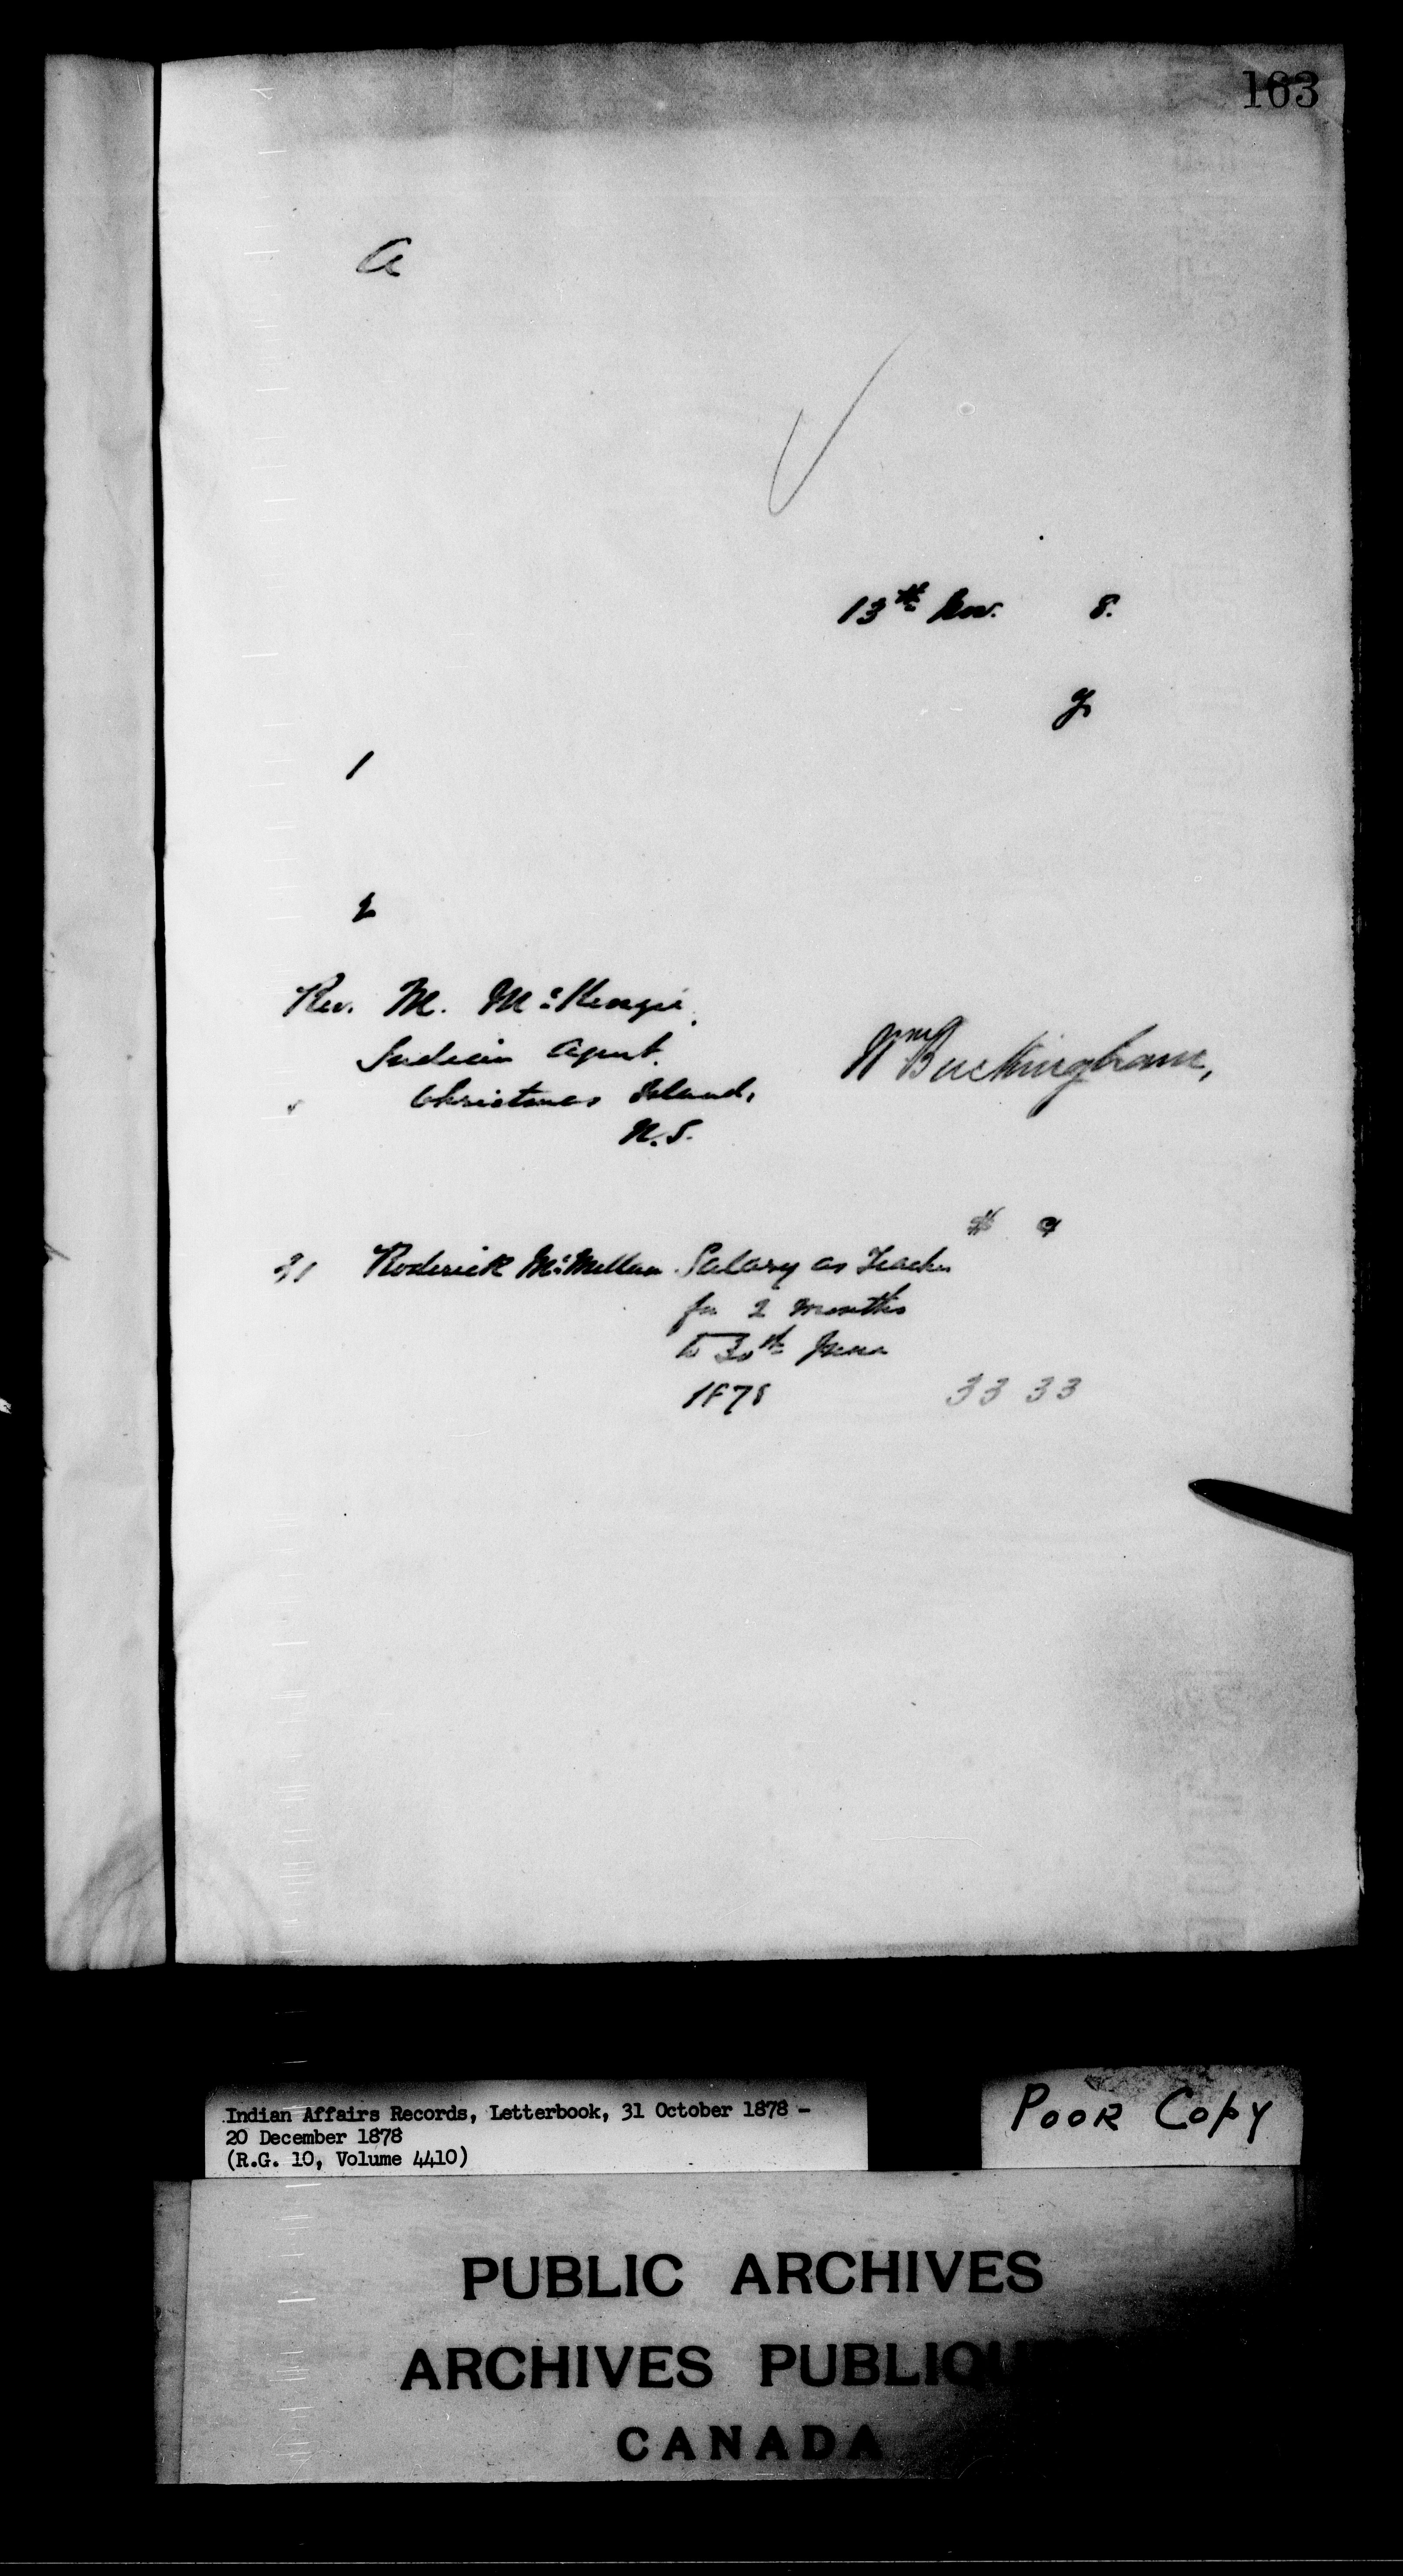 163
A
13th Nov. 8.
1
2
Rev. M. McKenzie,
Indian Agent.
Christmas Island,
N.S.
Wm Buckingham,
$ c
31 Roderick McMillan Salary as Teacher
for 2 months
to 30th June
1878 33 33
Indian Affairs Records, Letterbook, 31 October 1878 -
20 December 1878
(R.G. 10, Volume 4410)
POOR COPY
PUBLIC ARCHIVES
ARCHIVES PUBLIQU
CANADA